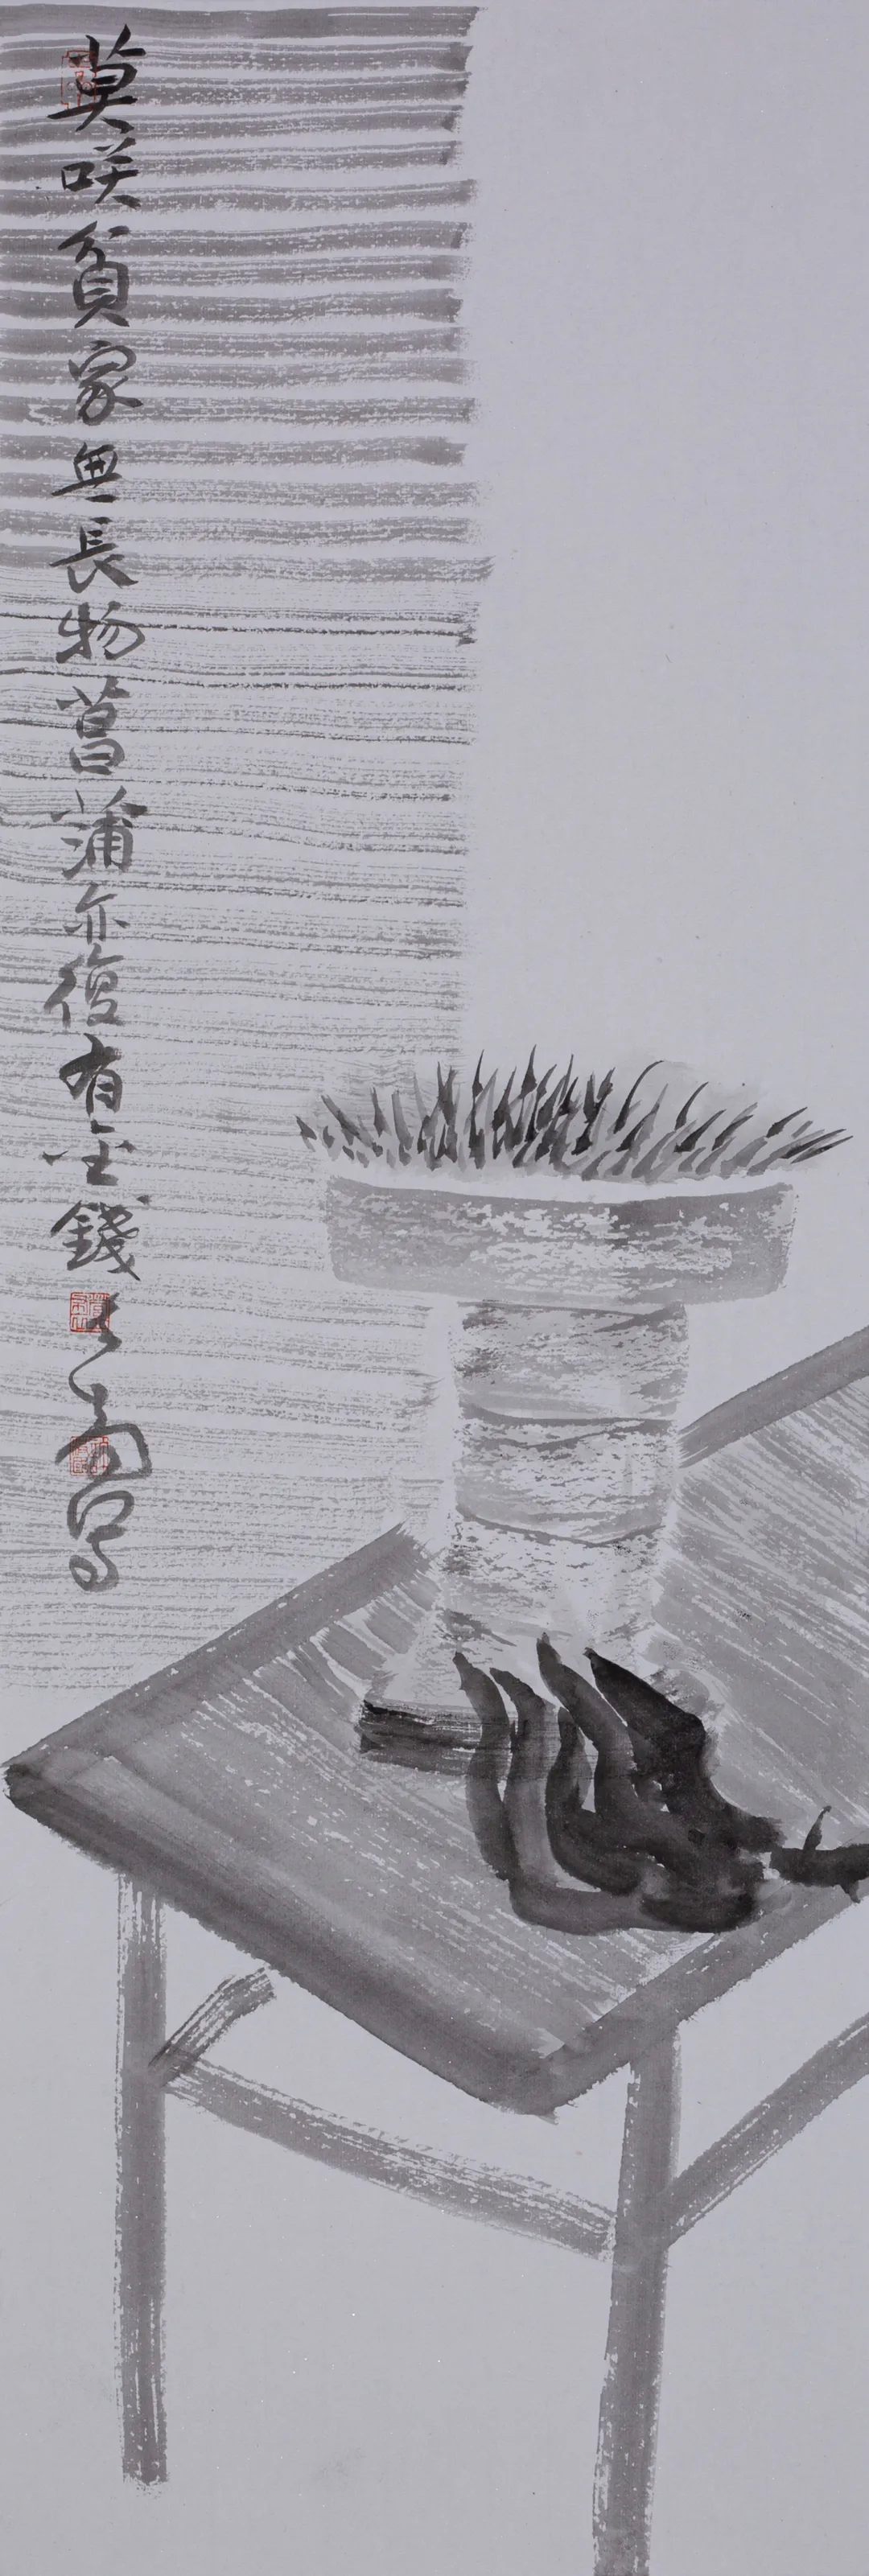 莫咲貧家無長物菖蒲亦復有金錢